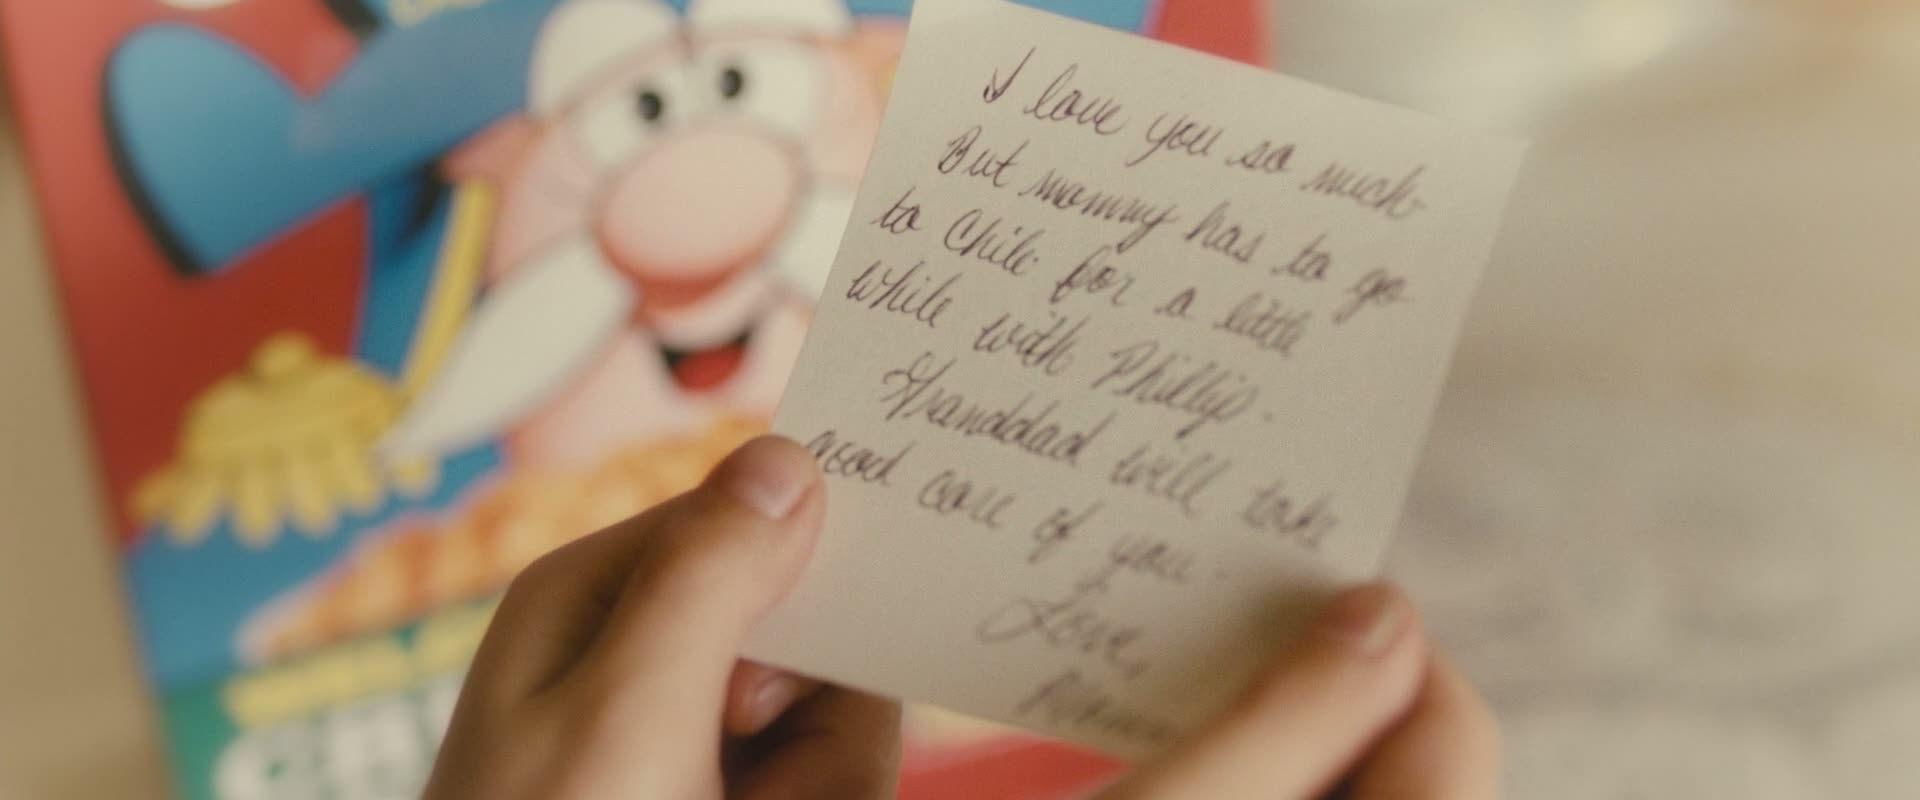 I love you so much
But mommy has to go
to Chile for a little
while with Phillip.
Granddad will take
good care of you.
Love,